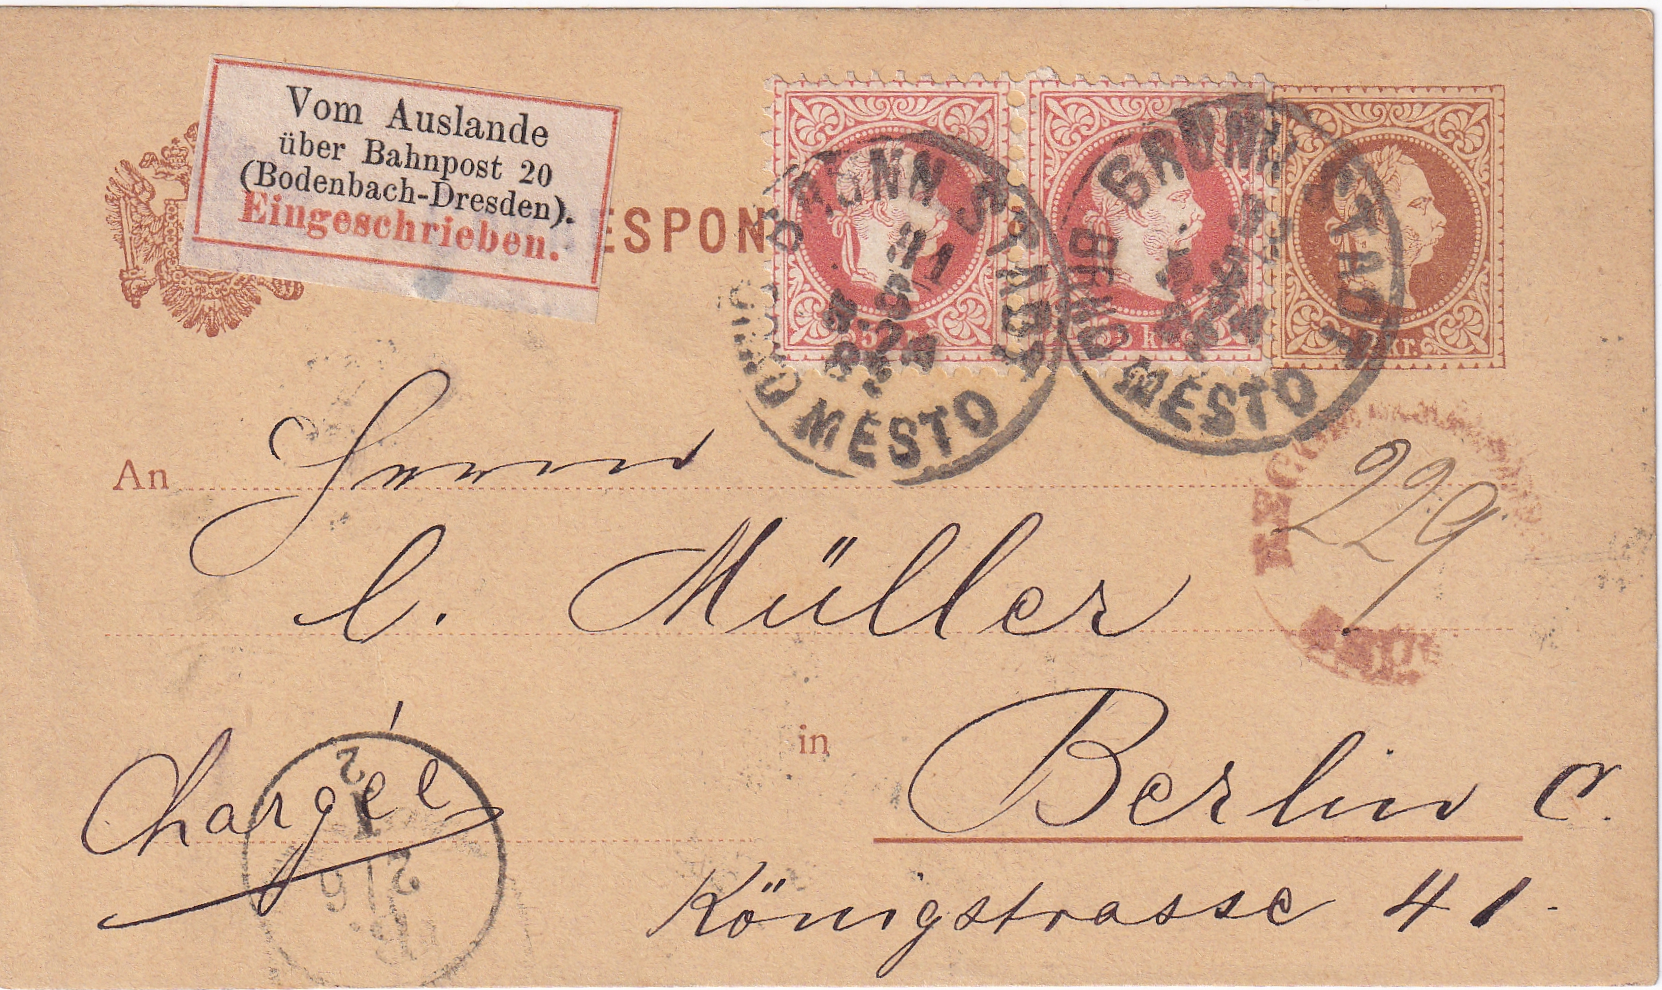 Vom Auslande
über Bahnpost 20
(Bodenbach-Dresden).
Eingeschrieben.
ESPON
BRÜNN STADT
BRNO MĚSTO
BRÜNN STADT
BRNO MĚSTO
5 kr.
kr.
An Herrn
C. Müller
229
Chargée
in Berlin C.
Königstrasse 41.